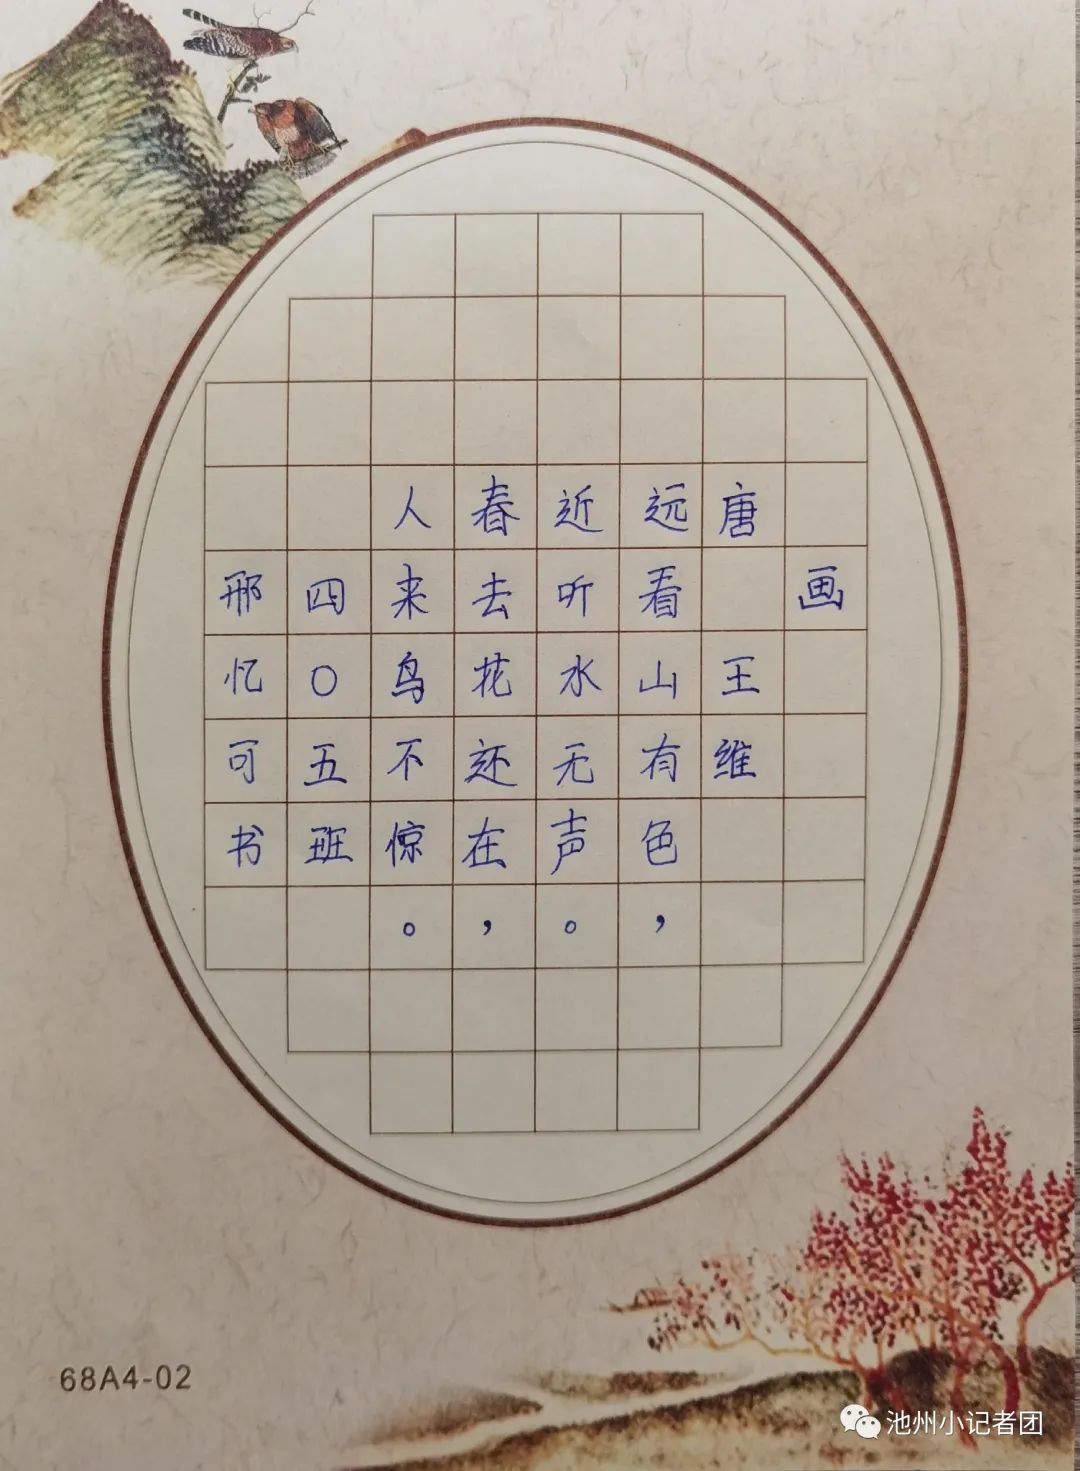 画
唐 王维
远看山有色，
近听水无声。
春去花还在，
人来鸟不惊。
四〇五班
邢忆可书
68A4-02
池州小记者团